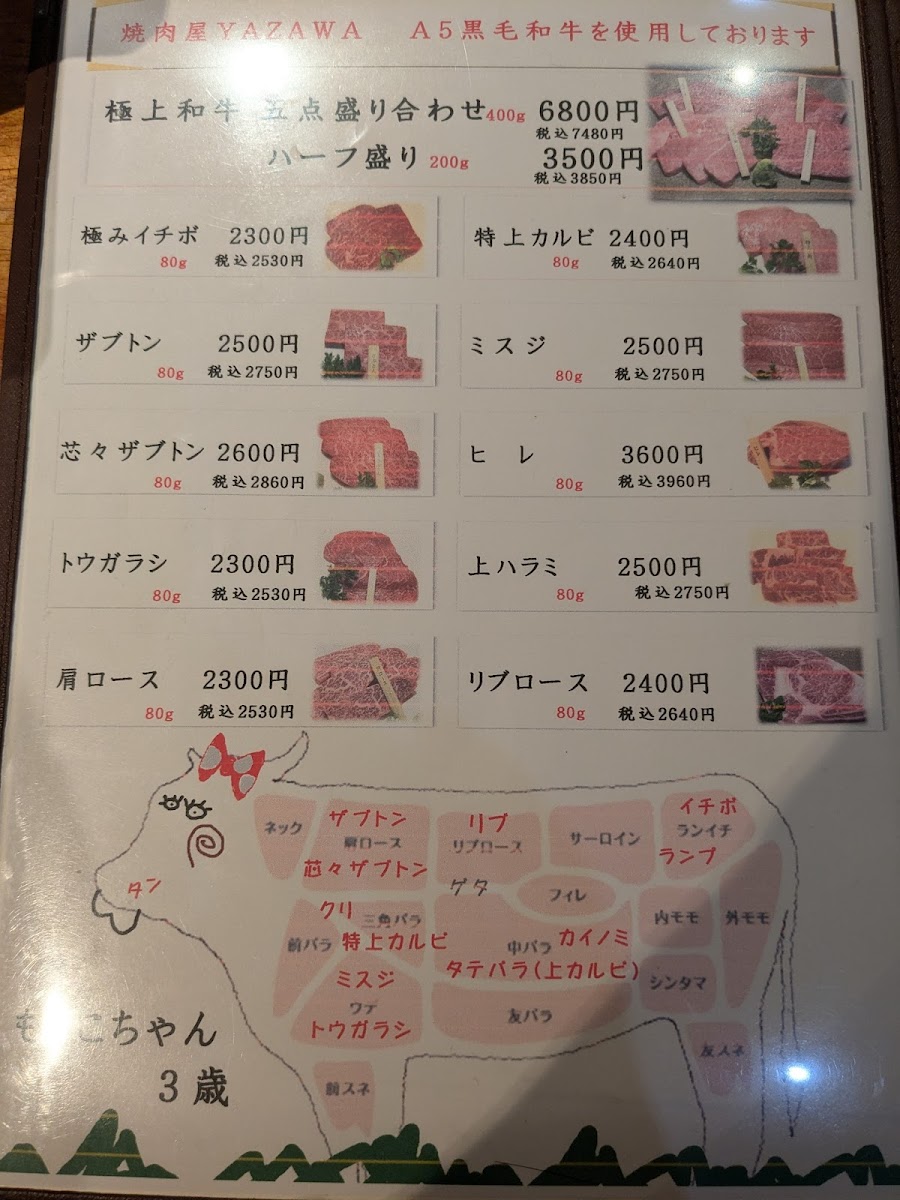 焼肉屋YAZAWA A5黒毛和牛を使用しております
極上和牛 五点盛り合わせ400g 6800円
税込7480円
ハーフ盛り 200g 3500円
税込3850円
極みイチボ 2300円
80g 税込2530円
特上カルビ 2400円
80g 税込2640円
ザブトン 2500円
80g 税込2750円
ミスジ 2500円
80g 税込2750円
芯々ザブトン 2600円
80g 税込2860円
ヒレ 3600円
80g 税込3960円
トウガラシ 2300円
80g 税込2530円
上ハラミ 2500円
80g 税込2750円
肩ロース 2300円
80g 税込2530円
リブロース 2400円
80g 税込2640円
タン
ネック
ザブトン
肩ロース
芯々ザブトン
リブ
リブロース
ゲタ
サーロイン
イチボ
ランイチ
ランプ
フィレ
クリ
三角バラ
前バラ 特上カルビ
中バラ カイノミ
タテバラ(上カルビ)
内モモ
外モモ
シンタマ
ミスジ
ウデ
トウガラシ
友バラ
友スネ
前スネ
こちゃん
3歳